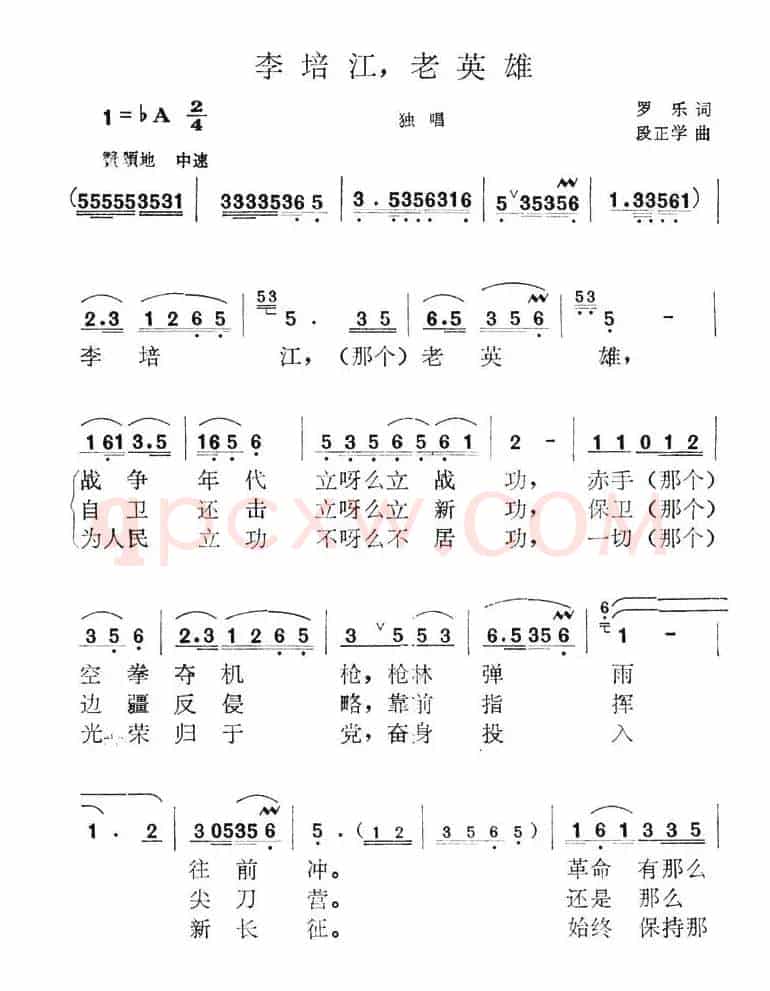 李培江，老英雄
1=♭A 2/4
独唱
罗乐词
段正学曲
赞颂地 中速
(5555553531 | 3333535365 | 3.5356316 | 5∨35356 | 1.33561)
2.3 1265 | 53 5. 35 | 6.5 356 | 53 5 -
李 培 江，（那个）老 英 雄，
161 3.5 | 165 6 | 53565661 | 2 - | 11012
战 争 年 代 立呀么立 战 功， 赤手（那个）
自 卫 还 击 立呀么立 新 功， 保卫（那个）
为人民 立 功 不呀么不 居 功， 一切（那个）
qpcxw.COM
356 | 2.3 1265 | 3∨553 | 6.5356 | 6 1 -
空 拳 夺 机 枪，枪林 弹 雨
边 疆 反 侵 略，靠前 指 挥
光 荣 归 于 党，奋身 投 入
1. 2 | 305356 | 5. (12 | 3565) | 161 335
往 前 冲。 革命 有那么
尖 刀 营。 还是 那么
新 长 征。 始终 保持那